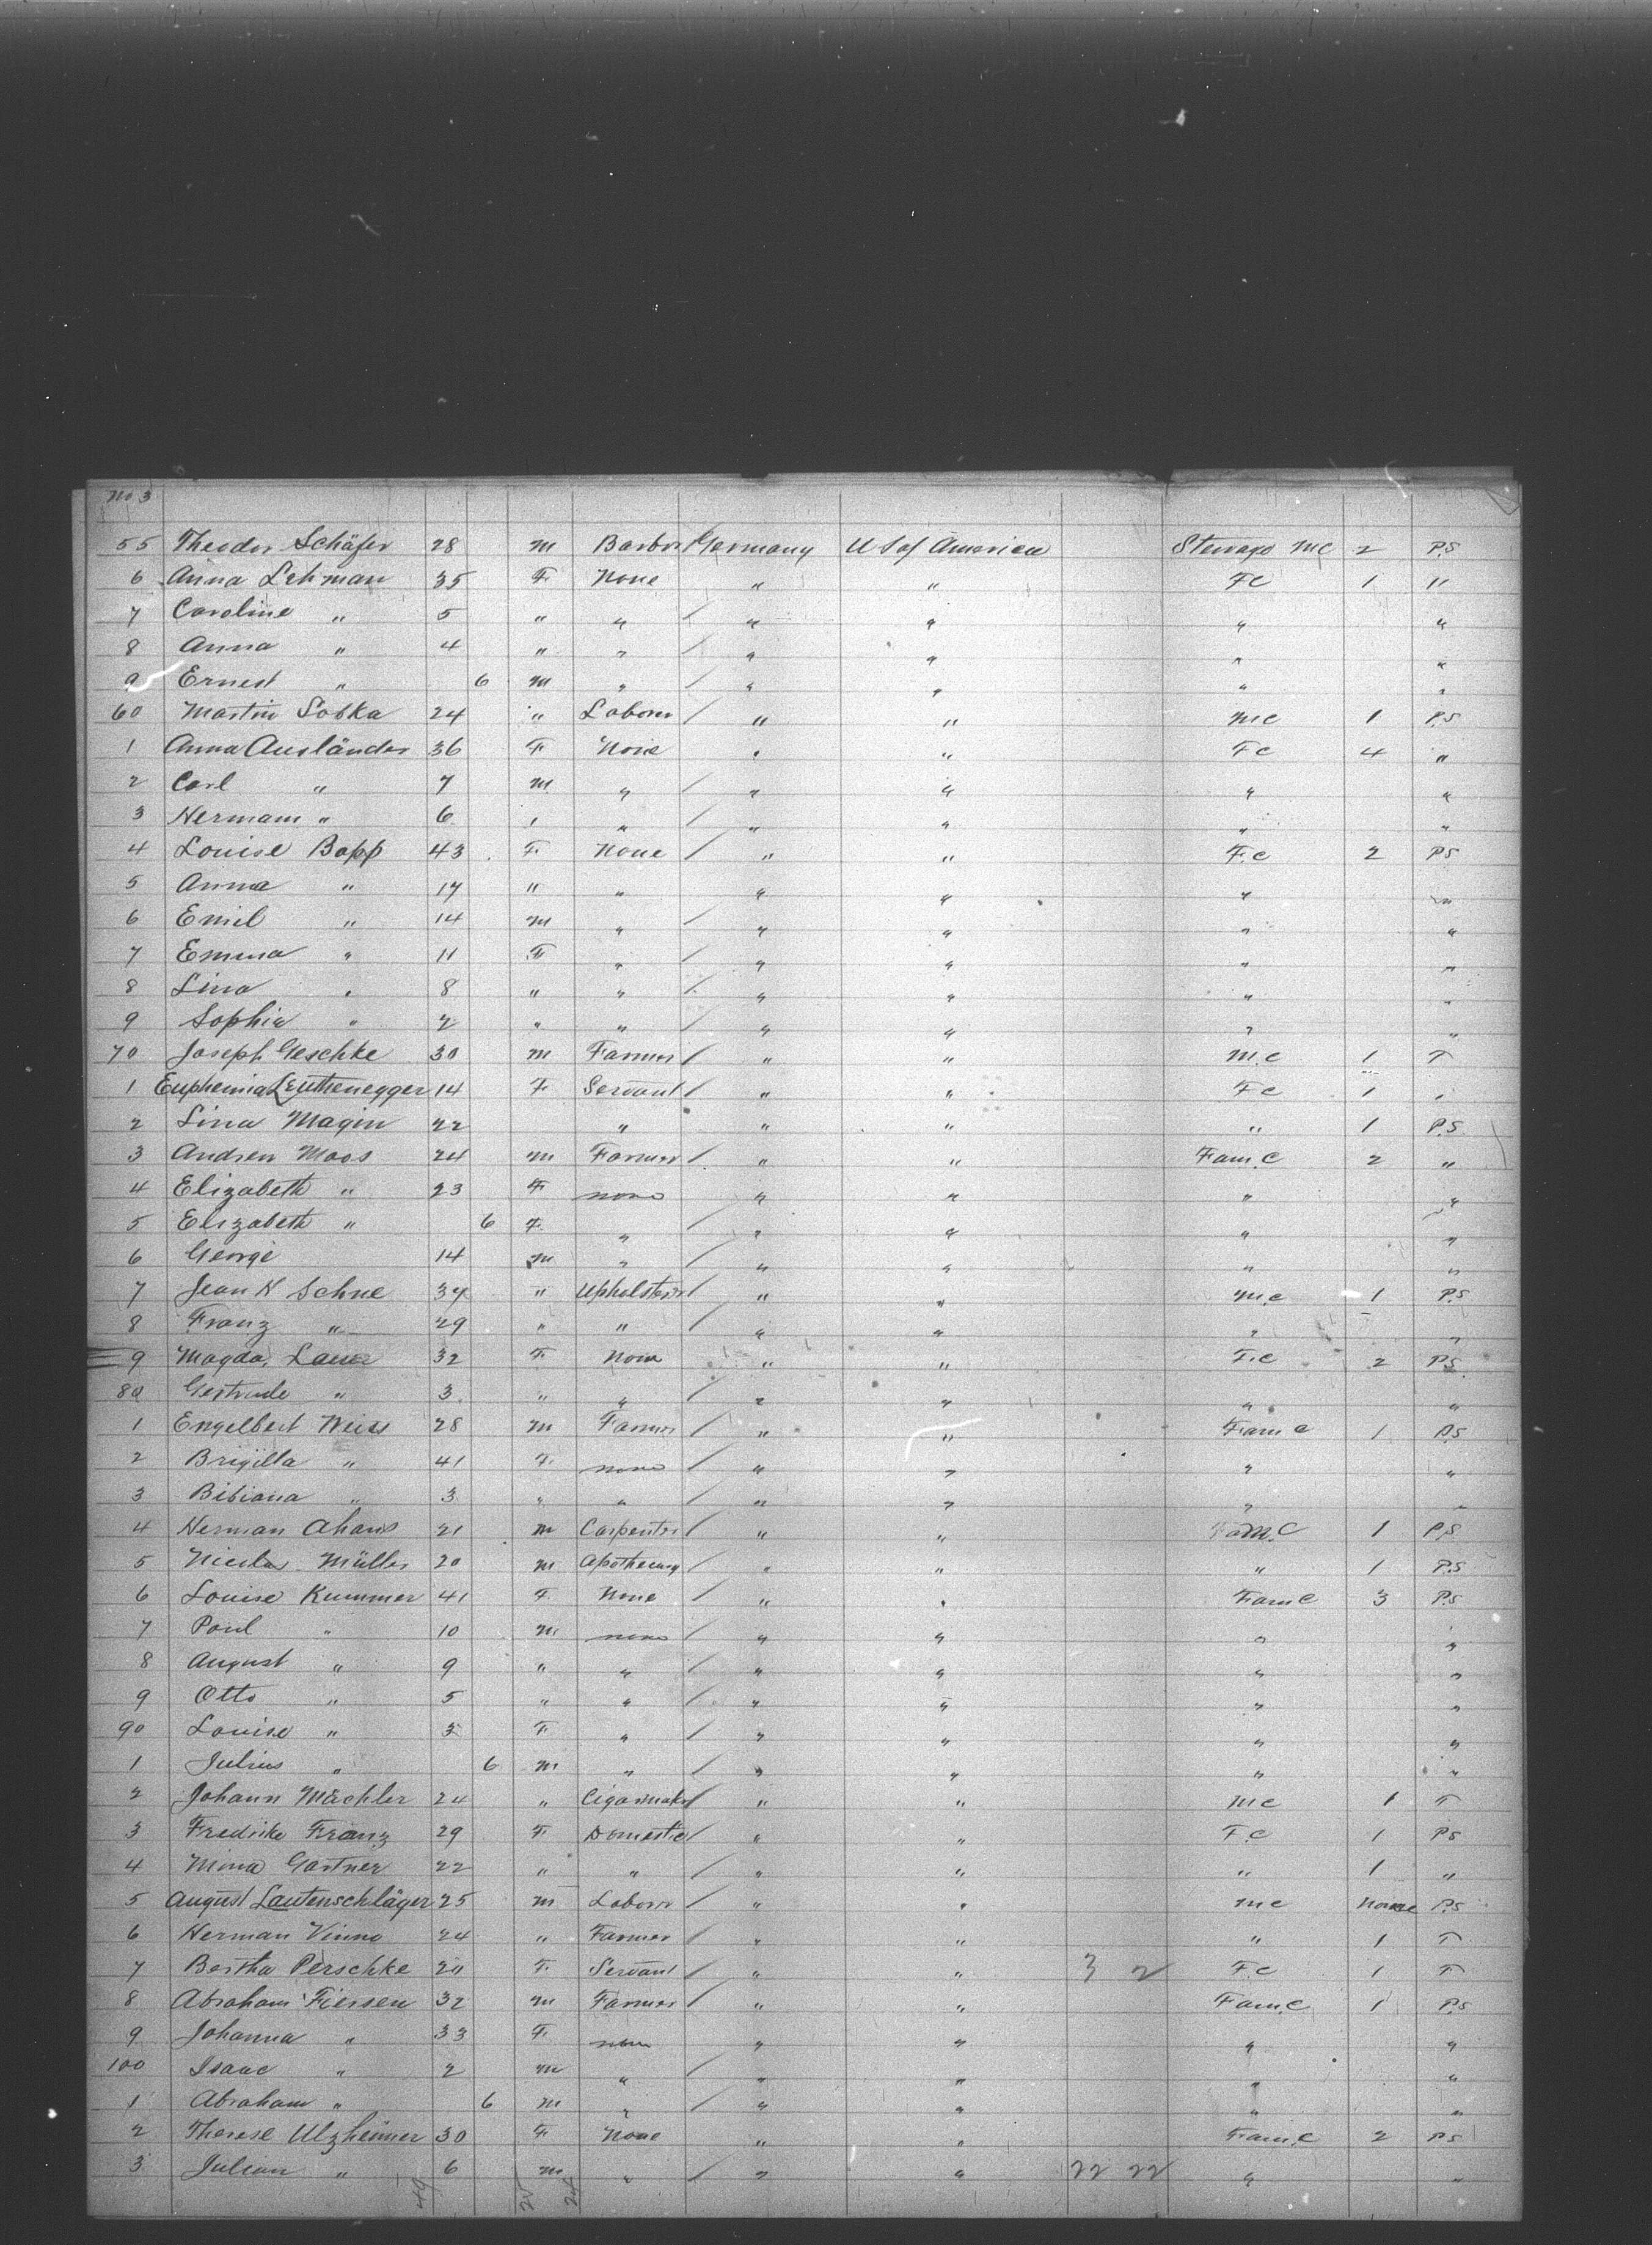 No 3
55 Theodor Schäfer 28 m Barber Germany U S of America Sterrage MC 2 P.S
6 Anna Lehman 35 F. None " " FC 1 "
7 Caroline " 5 " " / " " " "
8 Anna " 4 " " / " " " "
9 Ernest " 6 m " / " " " "
60 Martin Sobka 24 " Laborer / " " MC 1 P.S
1 Anna Ausländer 36 F None " " FC 4 "
2 Carl " 7 m " / " " " "
3 Hermann " 6 " " / " " " "
4 Louise Bopp 43 F. None / " " F.C 2 PS
5 Anna " 17 " " " " " "
6 Emil " 14 m " / " " " "
7 Emma " 11 F " / " " " "
8 Lina " 8 " " / " " " "
9 Sophia " 2 " " / " " " "
70 Joseph Geschke 30 m Farmer / " " M.C 1 T
1 Euphemia Leuthenegger 14 F Servant / " " FC 1 "
2 Lina Magin 22 " " " " 1 P.S
3 Andrew Moos 24 m Farmer / " " Fam.C 2 "
4 Elizabeth " 23 F none " " " "
5 Elizabeth " 6 F. " / " " " "
6 George 14 m " / " " " "
7 Jean H Schne 34 " Upholsterer / " " M.C 1 P.S
8 Franz " 29 " " / " " " "
9 Magda. Lauer 32 F. None " " F.C 2 P.S
80 Gertrude " 3 " " / " " " "
1 Engelbert Weiss 28 m Farmer / " " Fam C 1 P.S
2 Brigitta " 41 F. none / " " " "
3 Bibiana " 3 " " / " " " "
4 Herman Ahaus 21 m Carpenter / " " Fam.C 1 P.S
5 Nicolas Müller 20 m Apothecary " " " 1 P.S
6 Louise Kummer 41 F. None / " " Fam C 3 P.S
7 Paul " 10 m. none / " " " "
8 August " 9 " " / " " " "
9 Otto " 5 " " / " " " "
90 Louise " 3 F. " / " " " "
1 Julius " 6 m. " / " " " "
2 Johann Mächler 24 " Cigarmaker / " " MC 1 T
3 Fredrike Franz 29 F. Domestic / " " F.C 1 PS
4 Mina Gartner 22 " " / " " " 1 "
5 August Lautenschläger 25 m Laborer / " " MC None P.S
6 Herman Vinno 24 " Farmer / " " " 1 T
7 Bertha Perschke 20 F. Servant / " " 3 2 F.C 1 T
8 Abraham Fiersen 32 m Farmer / " " Fam.C 1 P.S
9 Johanna " 33 F. none " " " "
100 Isaac " 2 m " / " " " "
1 Abraham " 6 m " / " " " "
2 Therese Ulzheimer 30 F None " " Fam.C 2 PS
3 Julian " 6 m " / " " 22 22 " "
49 25 24